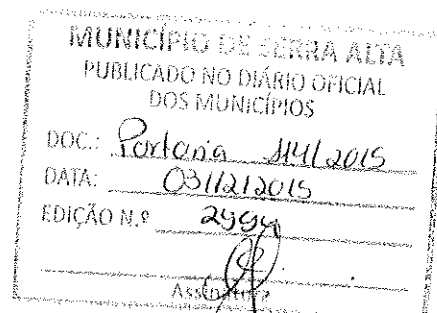 MUNICÍPIO DE SERRA ALTA
PUBLICADO NO DIÁRIO OFICIAL
DOS MUNICÍPIOS
DOC.: Portaria 2015
DATA: 03/12/2015
EDIÇÃO N.º
Assinatura